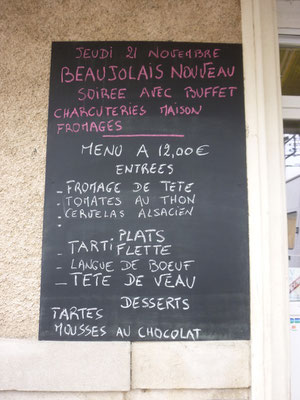 JEUDI 21 NOVEMBRE
BEAUJOLAIS NOUVEAU
SOIREE AVEC BUFFET
CHARCUTERIES MAISON
FROMAGES
MENU A 12,00€
ENTREES
- FROMAGE DE TETE
- TOMATES AU THON
- CERVELAS ALSACIEN
PLATS
- TARTIFLETTE
- LANGUE DE BOEUF
- TETE DE VEAU
DESSERTS
TARTES
MOUSSES AU CHOCOLAT